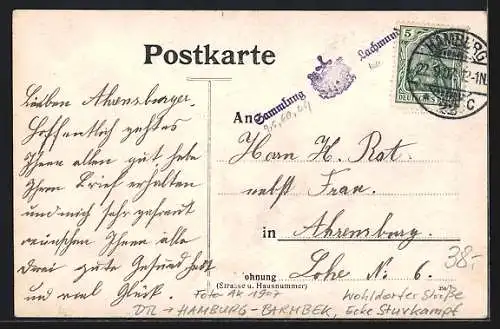 Postkarte
Sammlung Lachmund
5
DEUTSCHES
HAMBURG
22.9.07. 12-1N.
C
Lieben Ahrensburger.
Hoffentlich geht es
Ihnen allen gut habe
Ihren Brief erhalten
und mich sehr gefreut
wünschen Ihnen alle
drei gute Gesundheit
und viel Glück.
An
Herrn H. Rat.
nebst Frau.
in Ahrensburg.
Wohnung Lohe No. 6.
(Strasse u. Hausnummer)
38,-
Foto AK 1907 Wohldorfer Straße
DR → HAMBURG-BARMBEK, Ecke Sturkampf